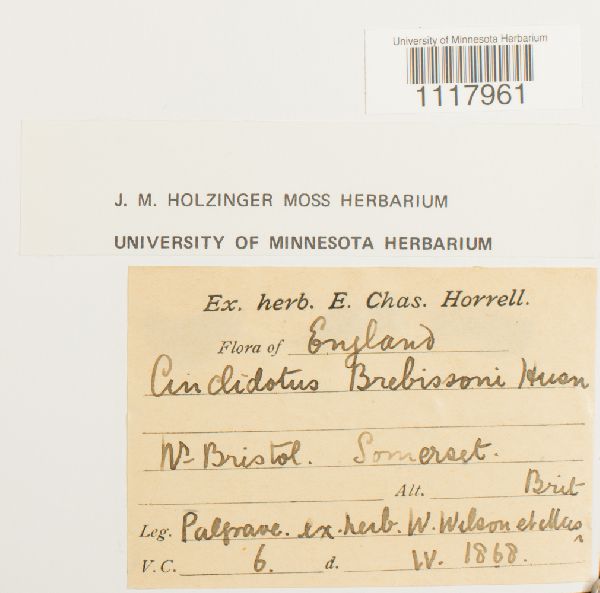 University of Minnesota Herbarium
1117961
J. M. HOLZINGER MOSS HERBARIUM
UNIVERSITY OF MINNESOTA HERBARIUM
Ex. herb. E. Chas. Horrell.
Flora of England
Cinclidotus Brebissoni Husn
Nr Bristol. Somerset.
Alt. Brit
Leg. Palgrave. ex. herb. W. Wilson et
V.C. 6. d. IV. 1868.